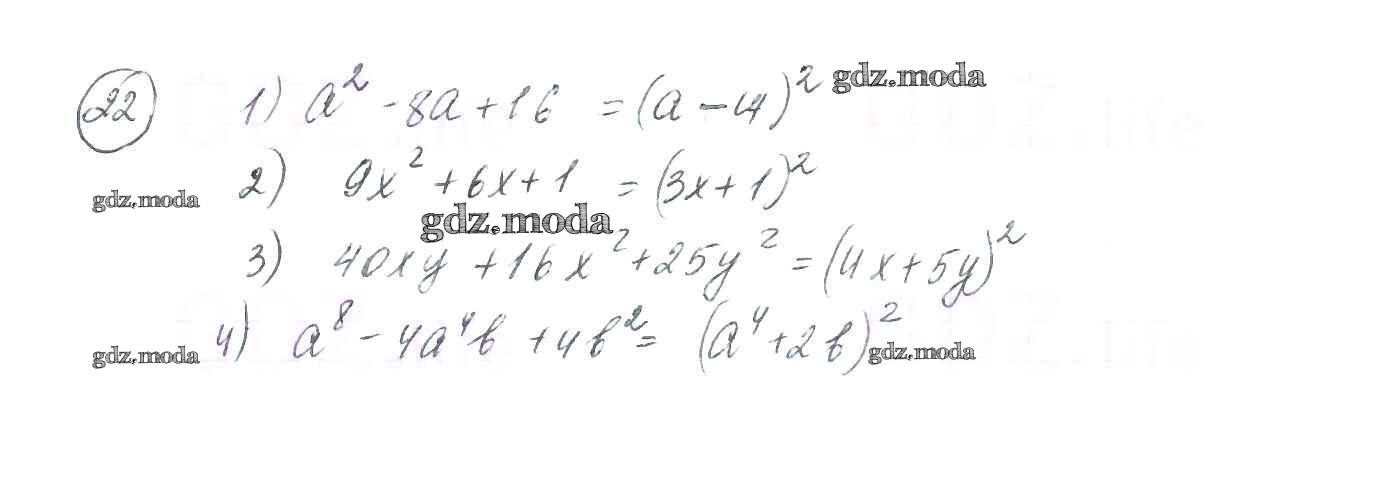 22 1) a² - 8a + 16 = (a - 4)² gdz.moda
gdz.moda 2) 9x² + 6x + 1 = (3x + 1)²
gdz.moda
3) 40xy + 16x² + 25y² = (4x + 5y)²
gdz.moda 4) a⁸ - 4a⁴b + 4b² = (a⁴ + 2b)² gdz.moda